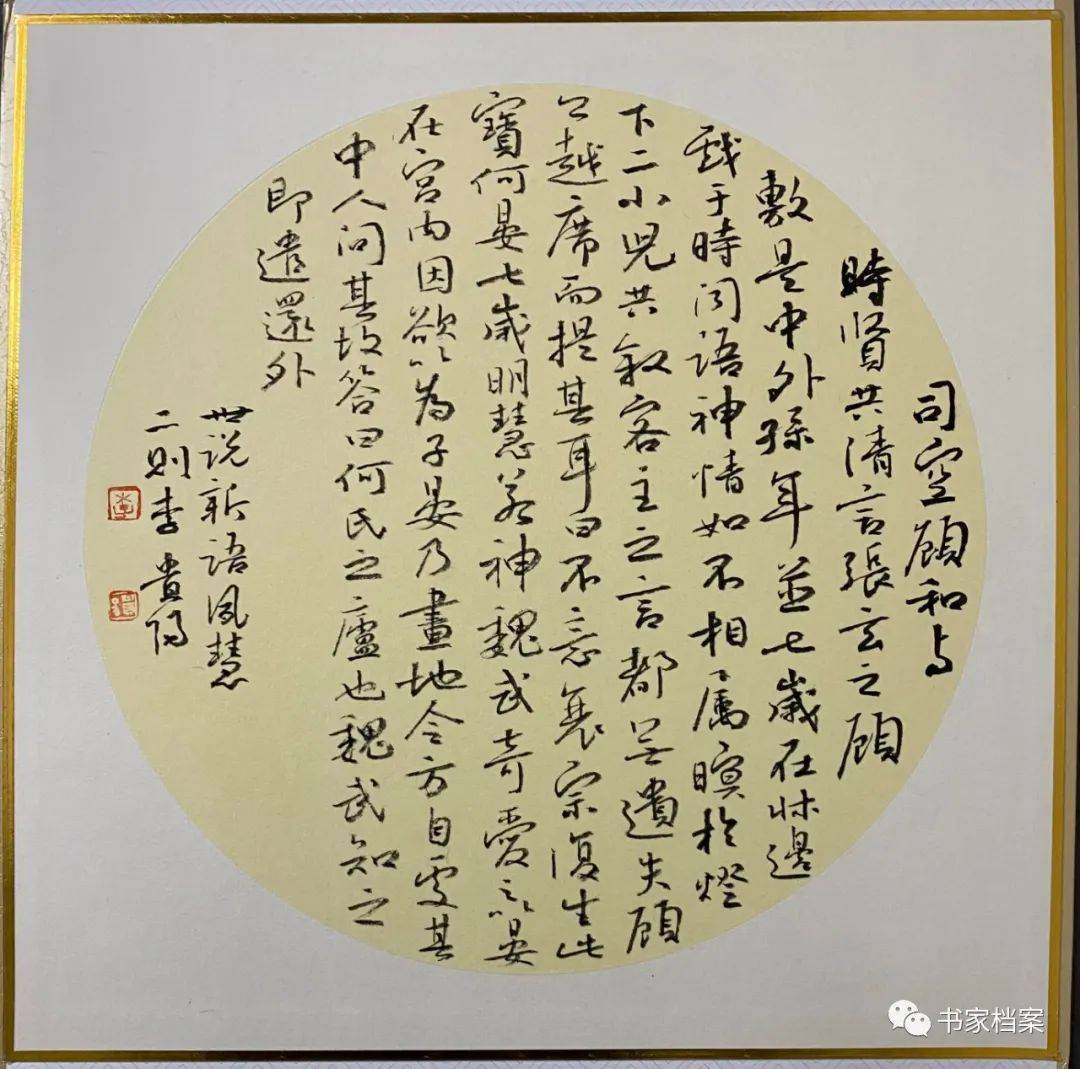 司空顾和与
時贤共清言張玄之顾
敷是中外孫年並七歲在牀邊
戏于時闻語神情如不相属瞑於燈
下二小兒共叙客主之言都無遺失顾
公越席而提其耳曰不意衰宗復生此
寶何晏七歲明慧若神魏武奇愛之以晏
在宫内因欲以為子晏乃畫地令方自處其
中人问其故答曰何氏之廬也魏武知之
即遣還外
世说新語夙慧
二则李貴陽
李
书家档案